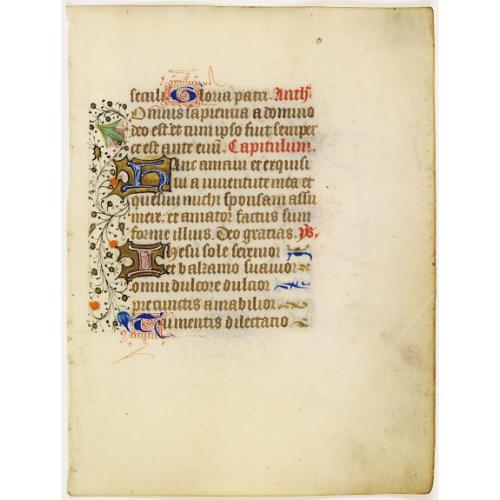 secul. Gloria patri. Anth.
Omnis sapientia a domino
deo est. et cum ipso fuit semper
et est ante euū. Capitulum.
Hanc amaui et exquisi
ui a iuuentute mea et
quesiui michi sponsam assu
mere. et amator factus sum
forme illius. Deo gracias. ys.
Ihesu sole serenior
et balzamo suauior
omni dulcore dulcior
pre cunctis amabilior
Tu mentis dilectatio